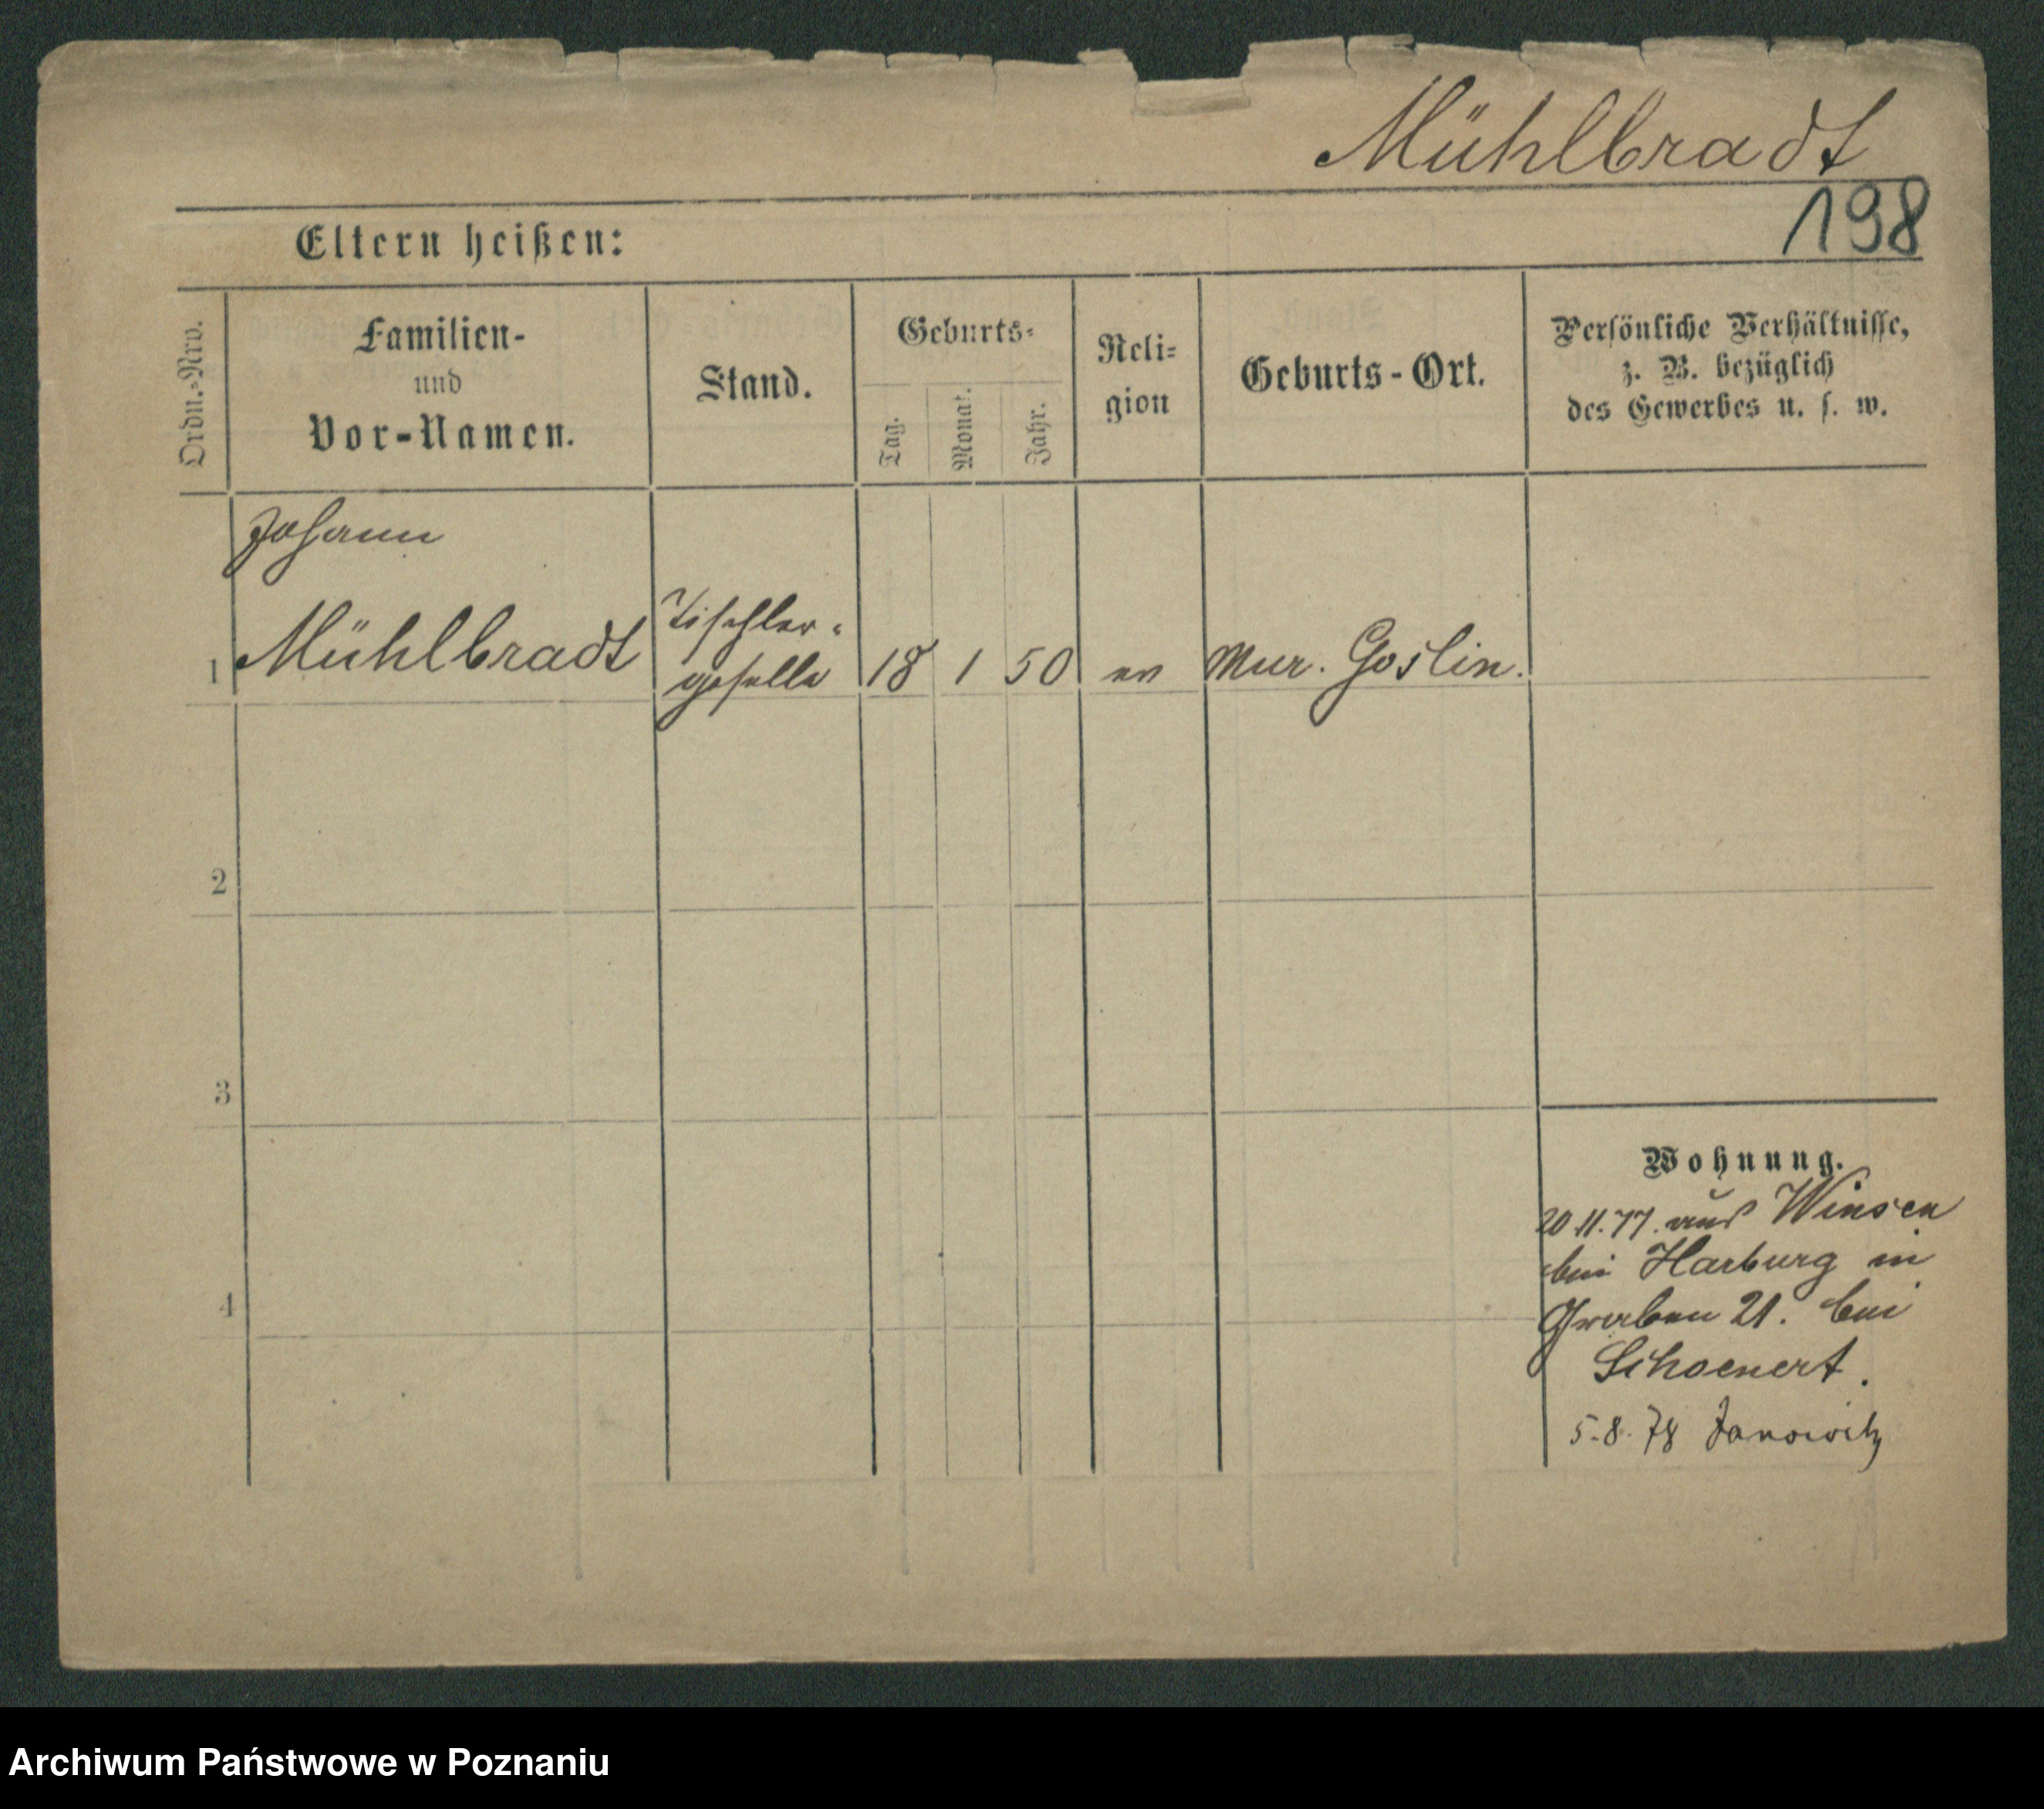 Mühlbradt
198
Eltern heißen:
Ordn.-Nro.
Familien-
und
Vor-Namen.
Stand.
Geburts-
Tag.
Monat.
Jahr.
Reli-
gion
Geburts-Ort.
Persönliche Verhältnisse,
z. B. bezüglich
des Gewerbes u. s. w.
Johann
1 Mühlbradt
Tischler-
geselle
18 1 50 ev Mur. Goslin.
2
3
4
Wohnung.
20.11.77. aus Winsen
bei Harburg in
Graben 21. bei
Schoenert.
5.8.78 Janowitz
Archiwum Państwowe w Poznaniu